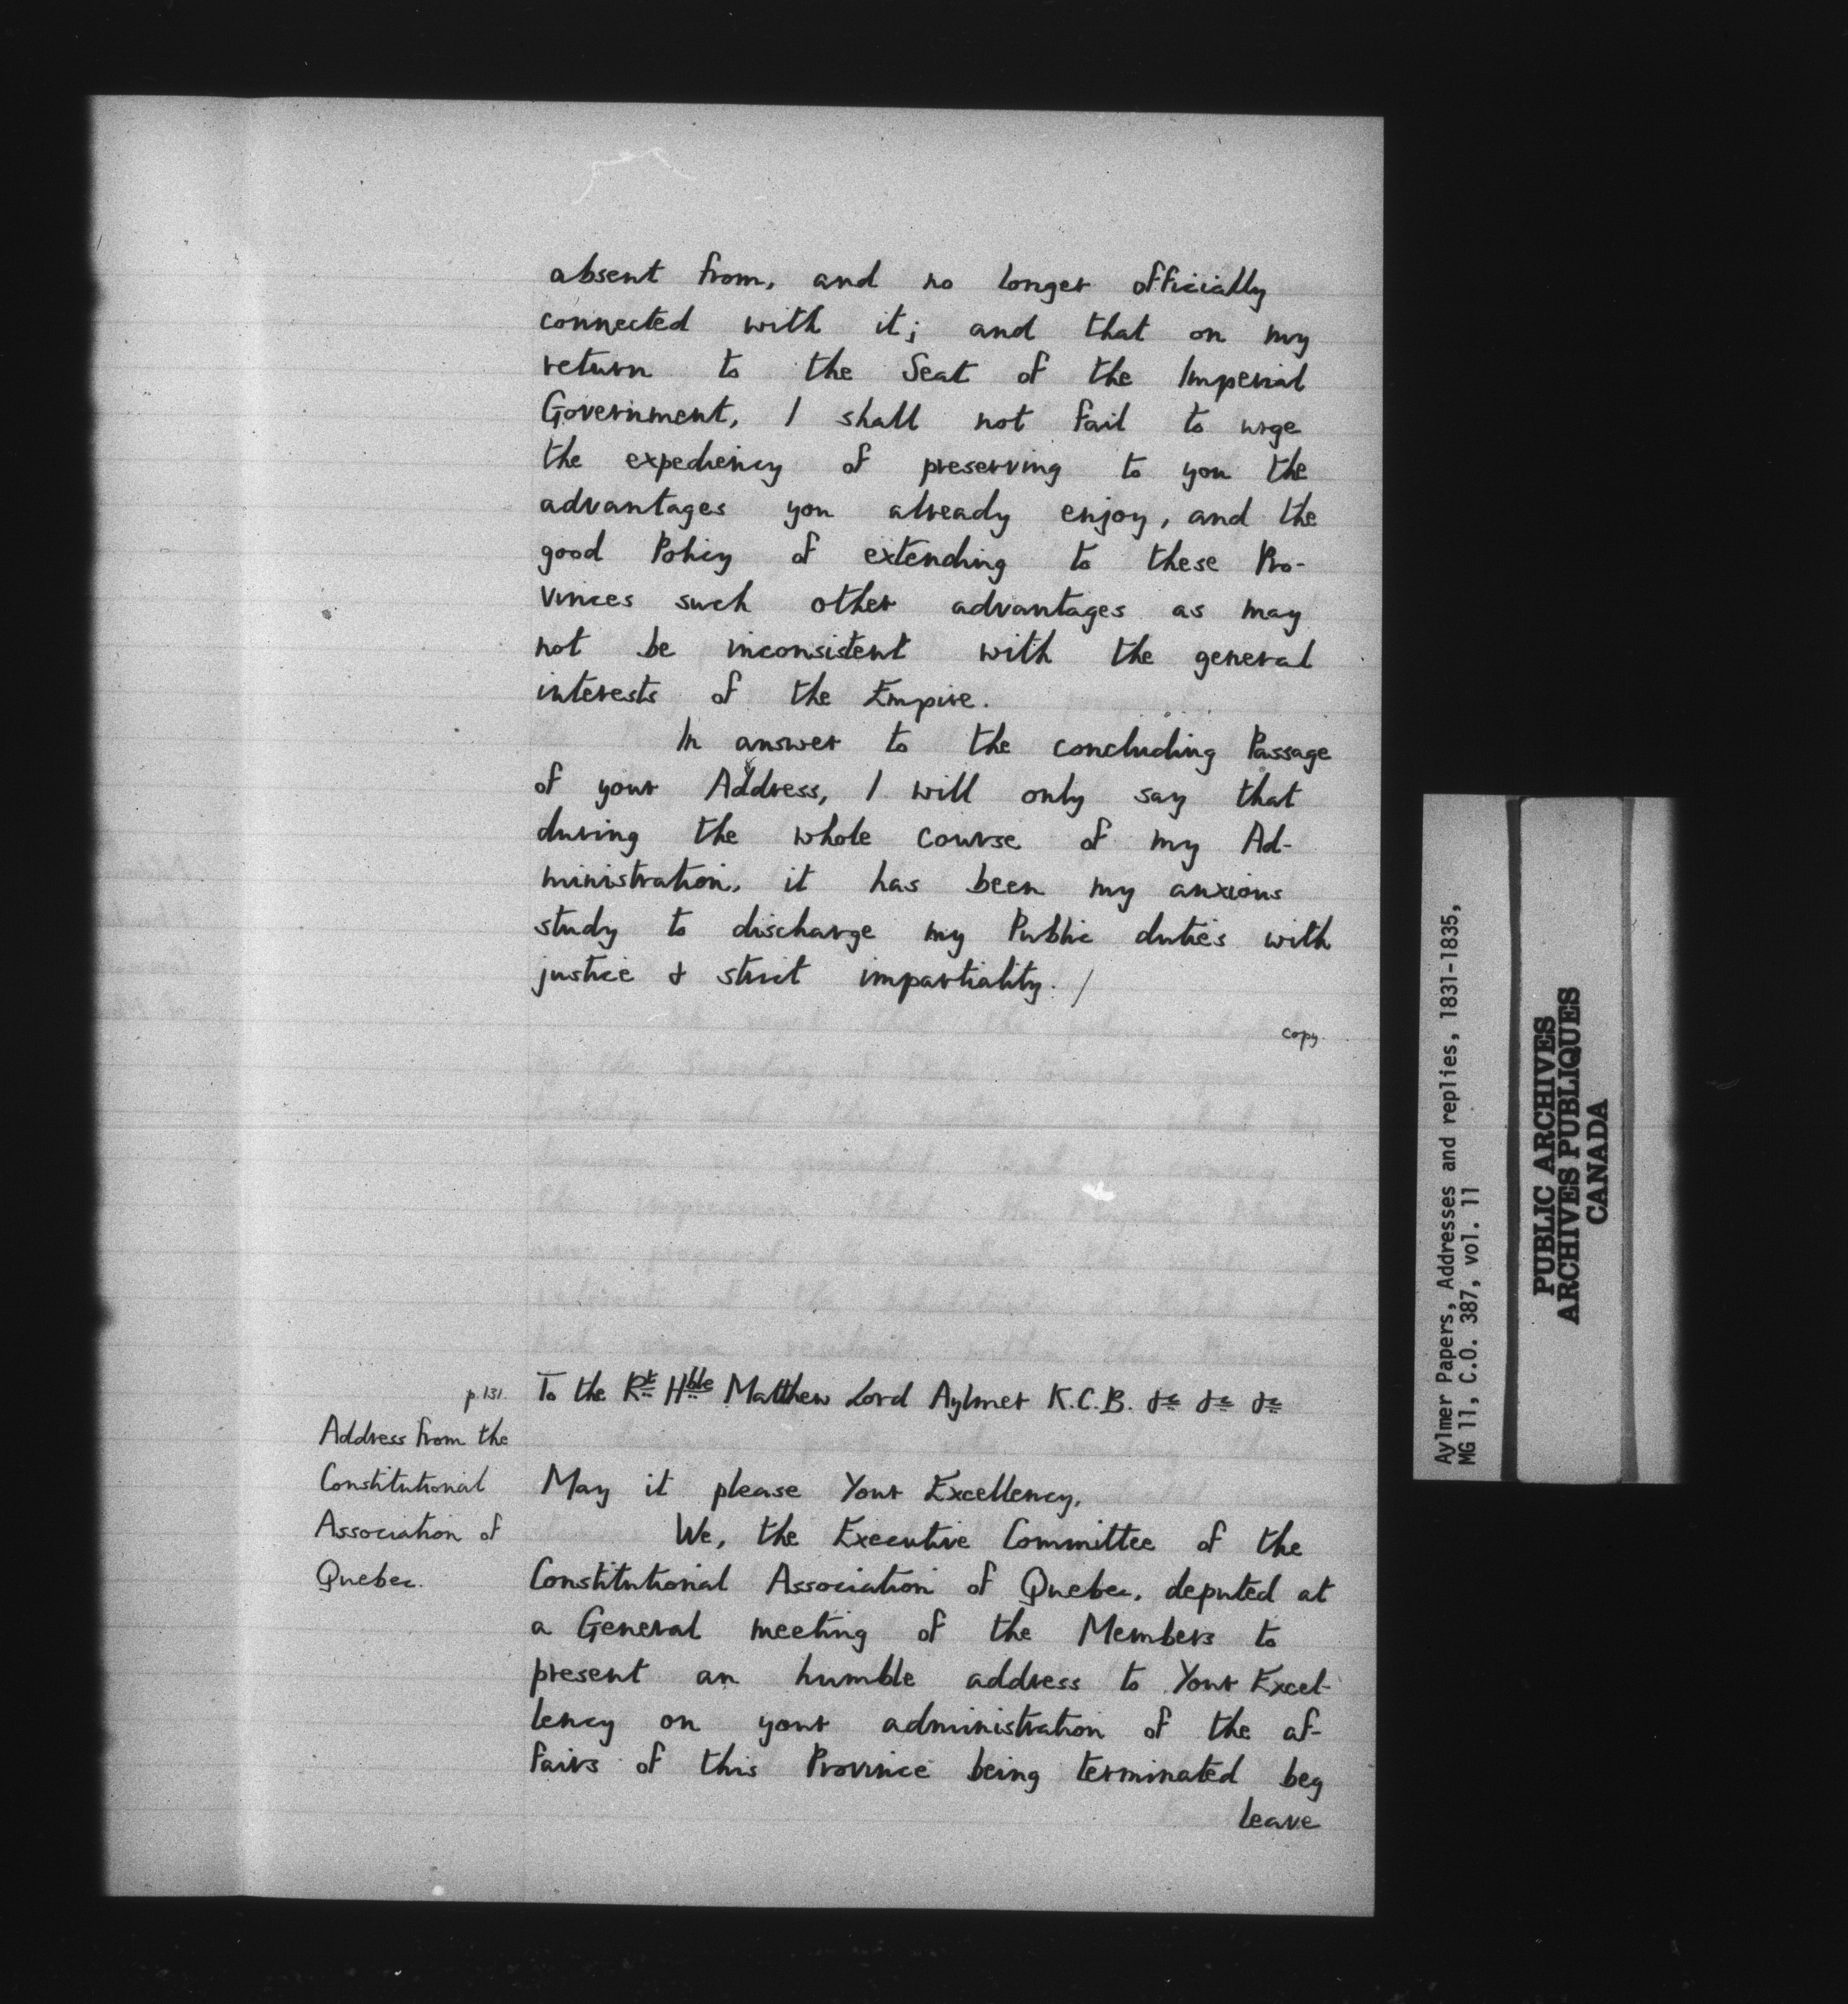 absent from, and no longer officially
connected with it; and that on my
return to the Seat of the Imperial
Government, I shall not fail to urge
the expediency of preserving to you the
advantages you already enjoy, and the
good Policy of extending to these Pro-
vinces such other advantages as may
not be inconsistent with the general
interests of the Empire.
In answer to the concluding Passage
of your Address, I will only say that
during the whole course of my Ad-
ministration, it has been my anxious
study to discharge my Public duties with
justice & strict impartiality. /
copy
p. 131.
To the Rt Hble Matthew Lord Aylmer K.C.B. &c &c &c
Address from the
Constitutional
Association of
Quebec.
May it please Your Excellency,
We, the Executive Committee of the
Constitutional Association of Quebec, deputed at
a General meeting of the Members to
present an humble address to Your Excel-
lency on your administration of the af-
fairs of this Province being terminated beg
leave
Aylmer Papers, Addresses and replies, 1831-1835,
MG 11, C.O. 387, vol. 11
PUBLIC ARCHIVES
ARCHIVES PUBLIQUES
CANADA